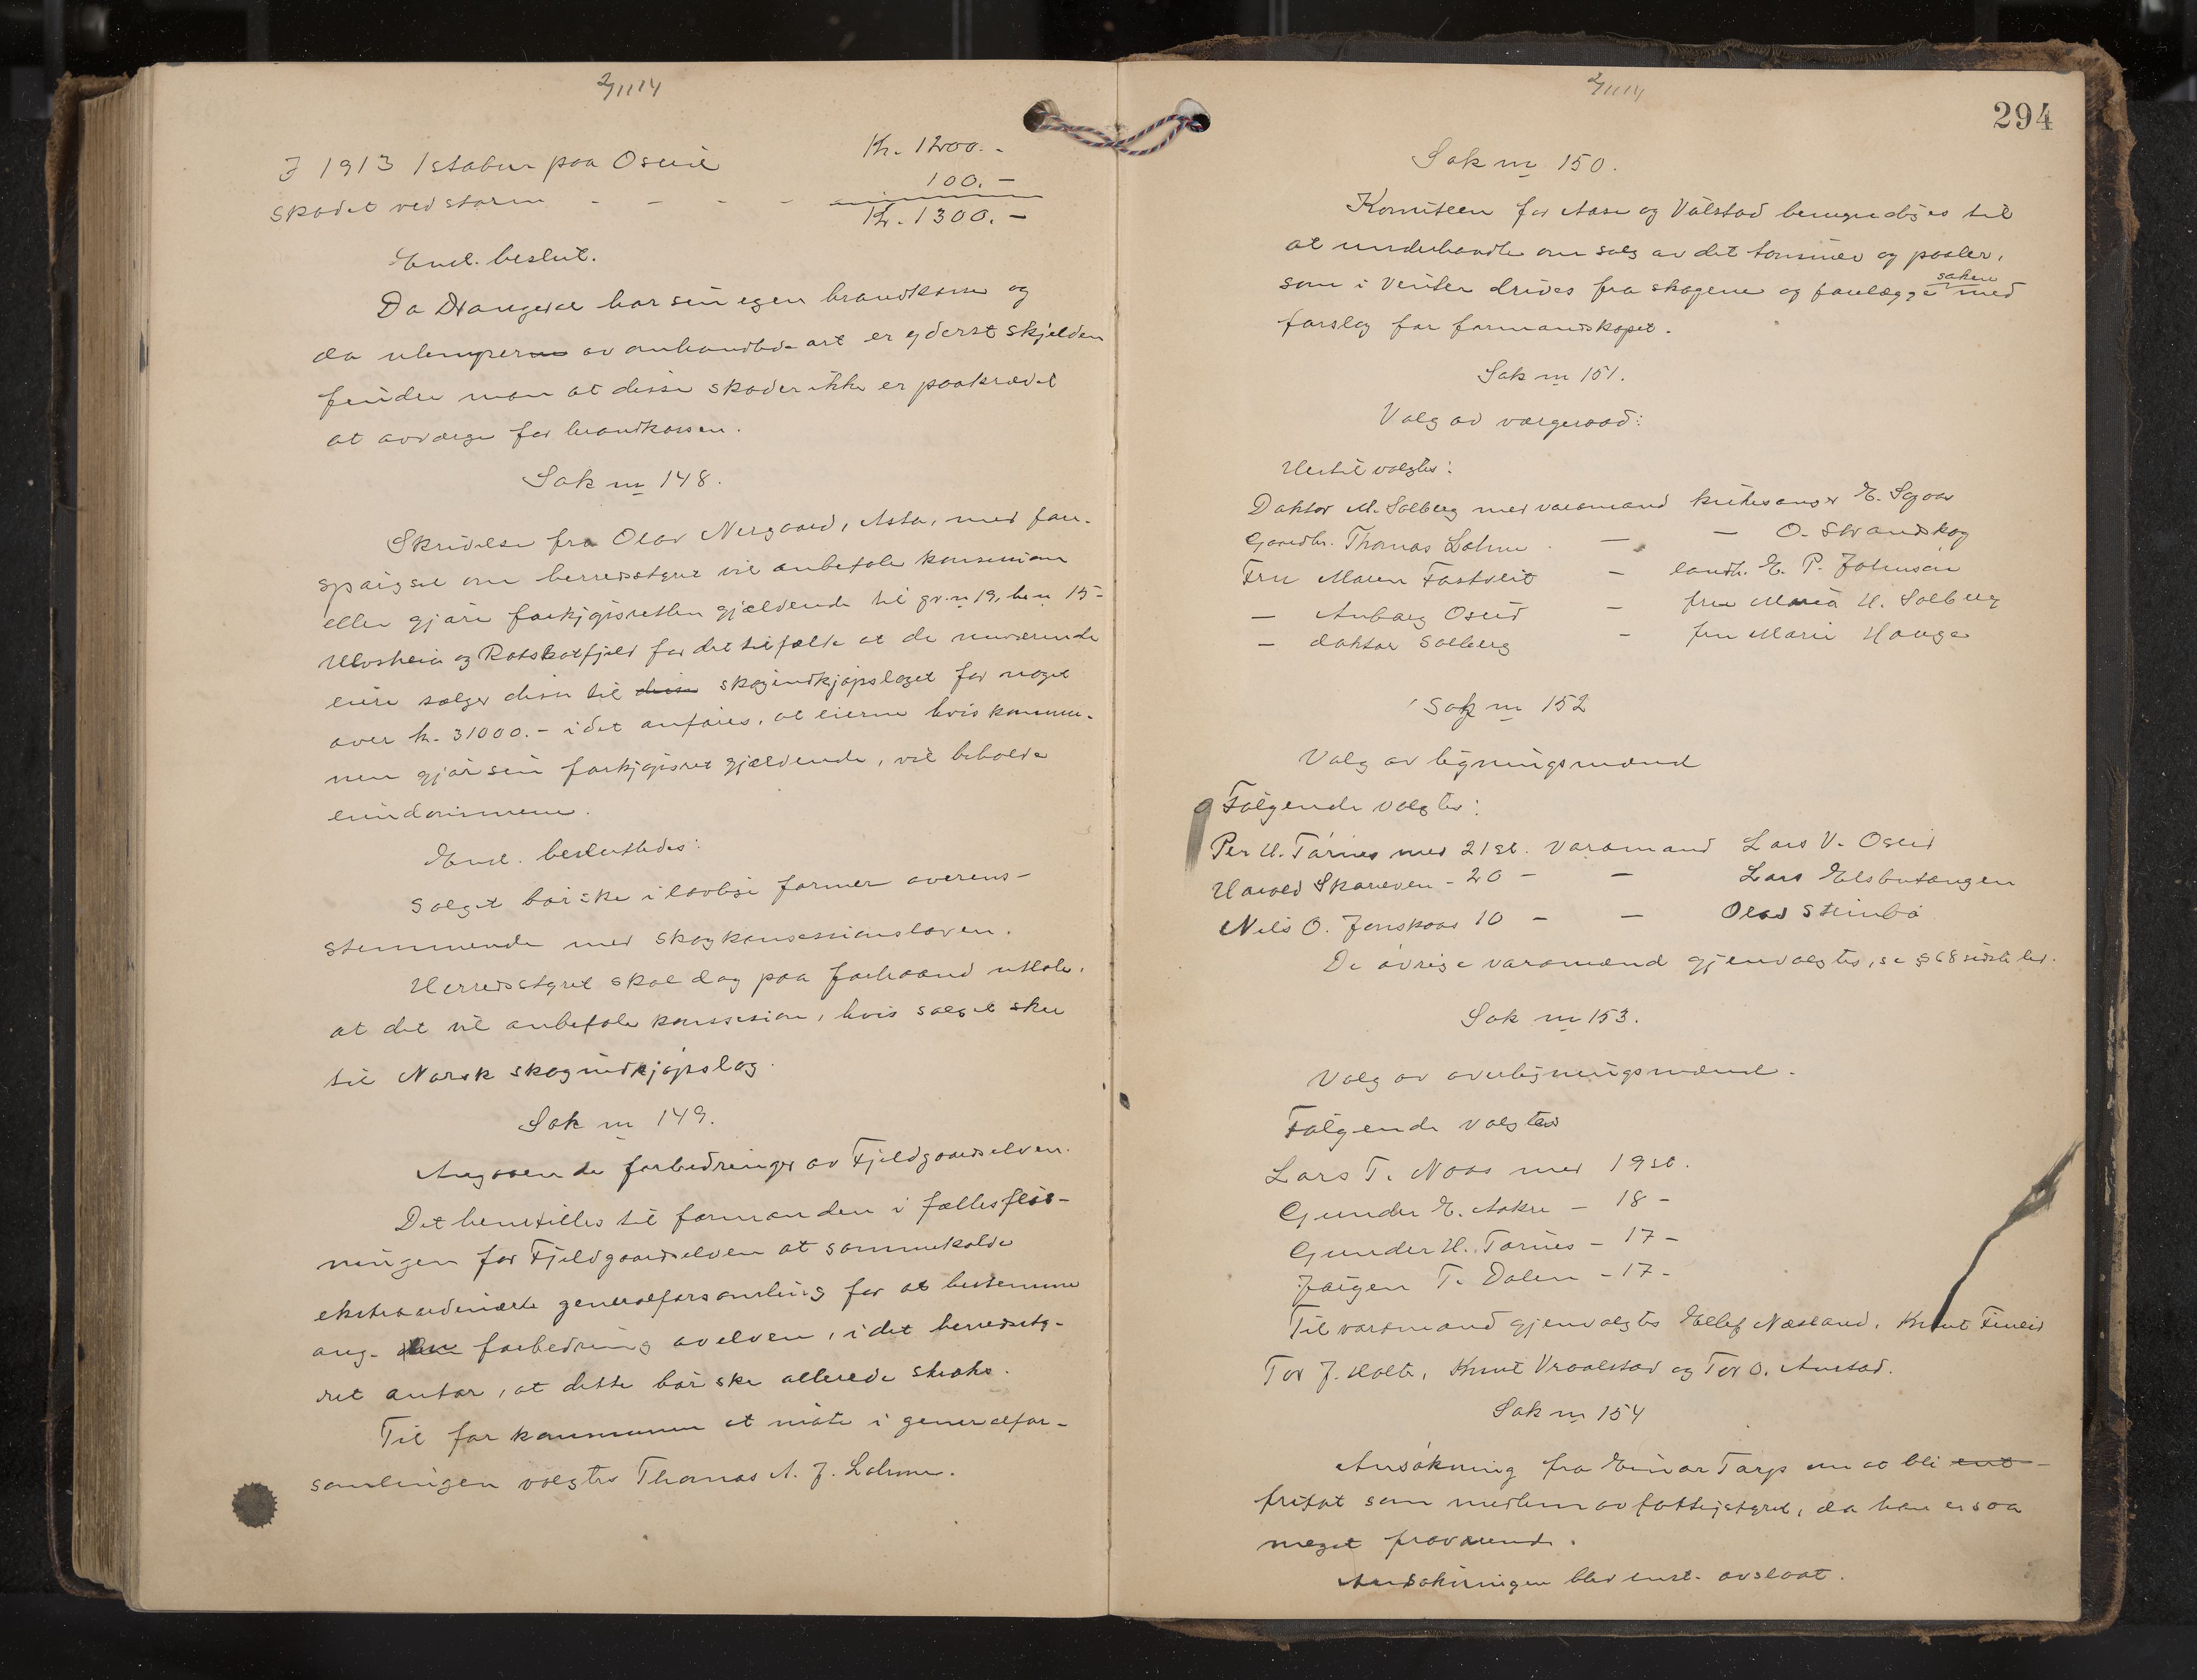 2/11 14
Kr. 1200.-
I 1913 1 stabur paa Oseid
100.-
skadet ved storm - - - -
Kr. 1300.-
Enst. beslut.
Da Drangedal har sin egen brandkasse og
da ulemperne av omhandlede art er yderst skjelden
finder man at disse skader ikke er paakrævet
at avværge for brandkassen.
Sak nr 148.
Skrivelse fra Olav Nergaard, Asta, med fore-
spørgsel om herredsstyret vil anbefale konsession
eller gjøre forkjøpsretten gjældende til gr.nr 19, br.nr 15 -
Ulvsheia og Rotskotfjeld for det tilfælde at de nuværende
eiere sælger disse til disse skogindkjøpslaget for noget
over kr. 31000.- idet anføres, at eierne hvis kommu-
nen gjør sin forkjøpsret gjældende, vil beholde
eiendommene.
Enst. besluttedes:
Salget bør ske i lovlige former overens-
stemmende med skogkonsessionsloven.
Herredsstyret skal dog paa forhaand uttale,
at det vil anbefale konsession, hvis salget sker
til Norsk skogindkjøpslag.
Sak nr 149.
Angaaende forbedringer av Fjeldgaardselven.
Det henstilles til formanden i fællesfløt-
ningen for Fjeldgaardselven at sammekalde
ekstraordinærte generalforsamling for at bestemme
ang. den forbedring av elven, idet herredssty-
ret antar, at dette bør ske allerede straks.
Til for kommunen at møte i generalfor-
samlingen valgtes Thomas A. J. Lohne.
2/11 14
294
Sak nr 150.
Komiteen for Aase og Vølstad bemyndiges til
at underhandle om salg av det tømmer og paaler,
som i vinter drives fra skogene og forelægge saken med
forslag for formandskapet.
Sak nr 151.
Valg av værgeraad:
Hertil valgtes:
Doktor M. Solberg med varamand kirkesanger E. Sgaar
Gaardbr. Thomas Lohne - - O. Strandskog
Fru Maren Tostveit - landh. E. P. Johnsen
- Anborg Oseid - fru Maria H. Solberg
- doktor Solberg - fru Marie Hauge
Sak nr 152
Valg av ligningsmænd
Følgende valgtes:
Per H. Tørnes med 21 st. varamand Lars V. Oseid
Harald Skareven - 20 - - Lars Elsbutangen
Nils O. Jonskaas 10 - - Olav Steinbø
De øvrige varamænd gjenvalgtes, se § 68 sidste led.
Sak nr 153.
Valg av overligningsmænd.
Følgende valgtes
Lars T. Naas med 19 st.
Gunder E. Aakre - 18 -
Gunder H. Tørnes - 17 -
Jørgen T. Dalen - 17 -
Til varamænd gjenvalgtes Ellef Næsland, Knut Fineid
Tor J. Holte, Knut Vraalstad og Tor O. Austad.
Sak nr 154
Ansøkning fra Einar Tarp om at bli ent-
fritat som medlem av fattigstyret, da han er saa
meget fraværende.
Ansøkningen blev enst. avslaat.